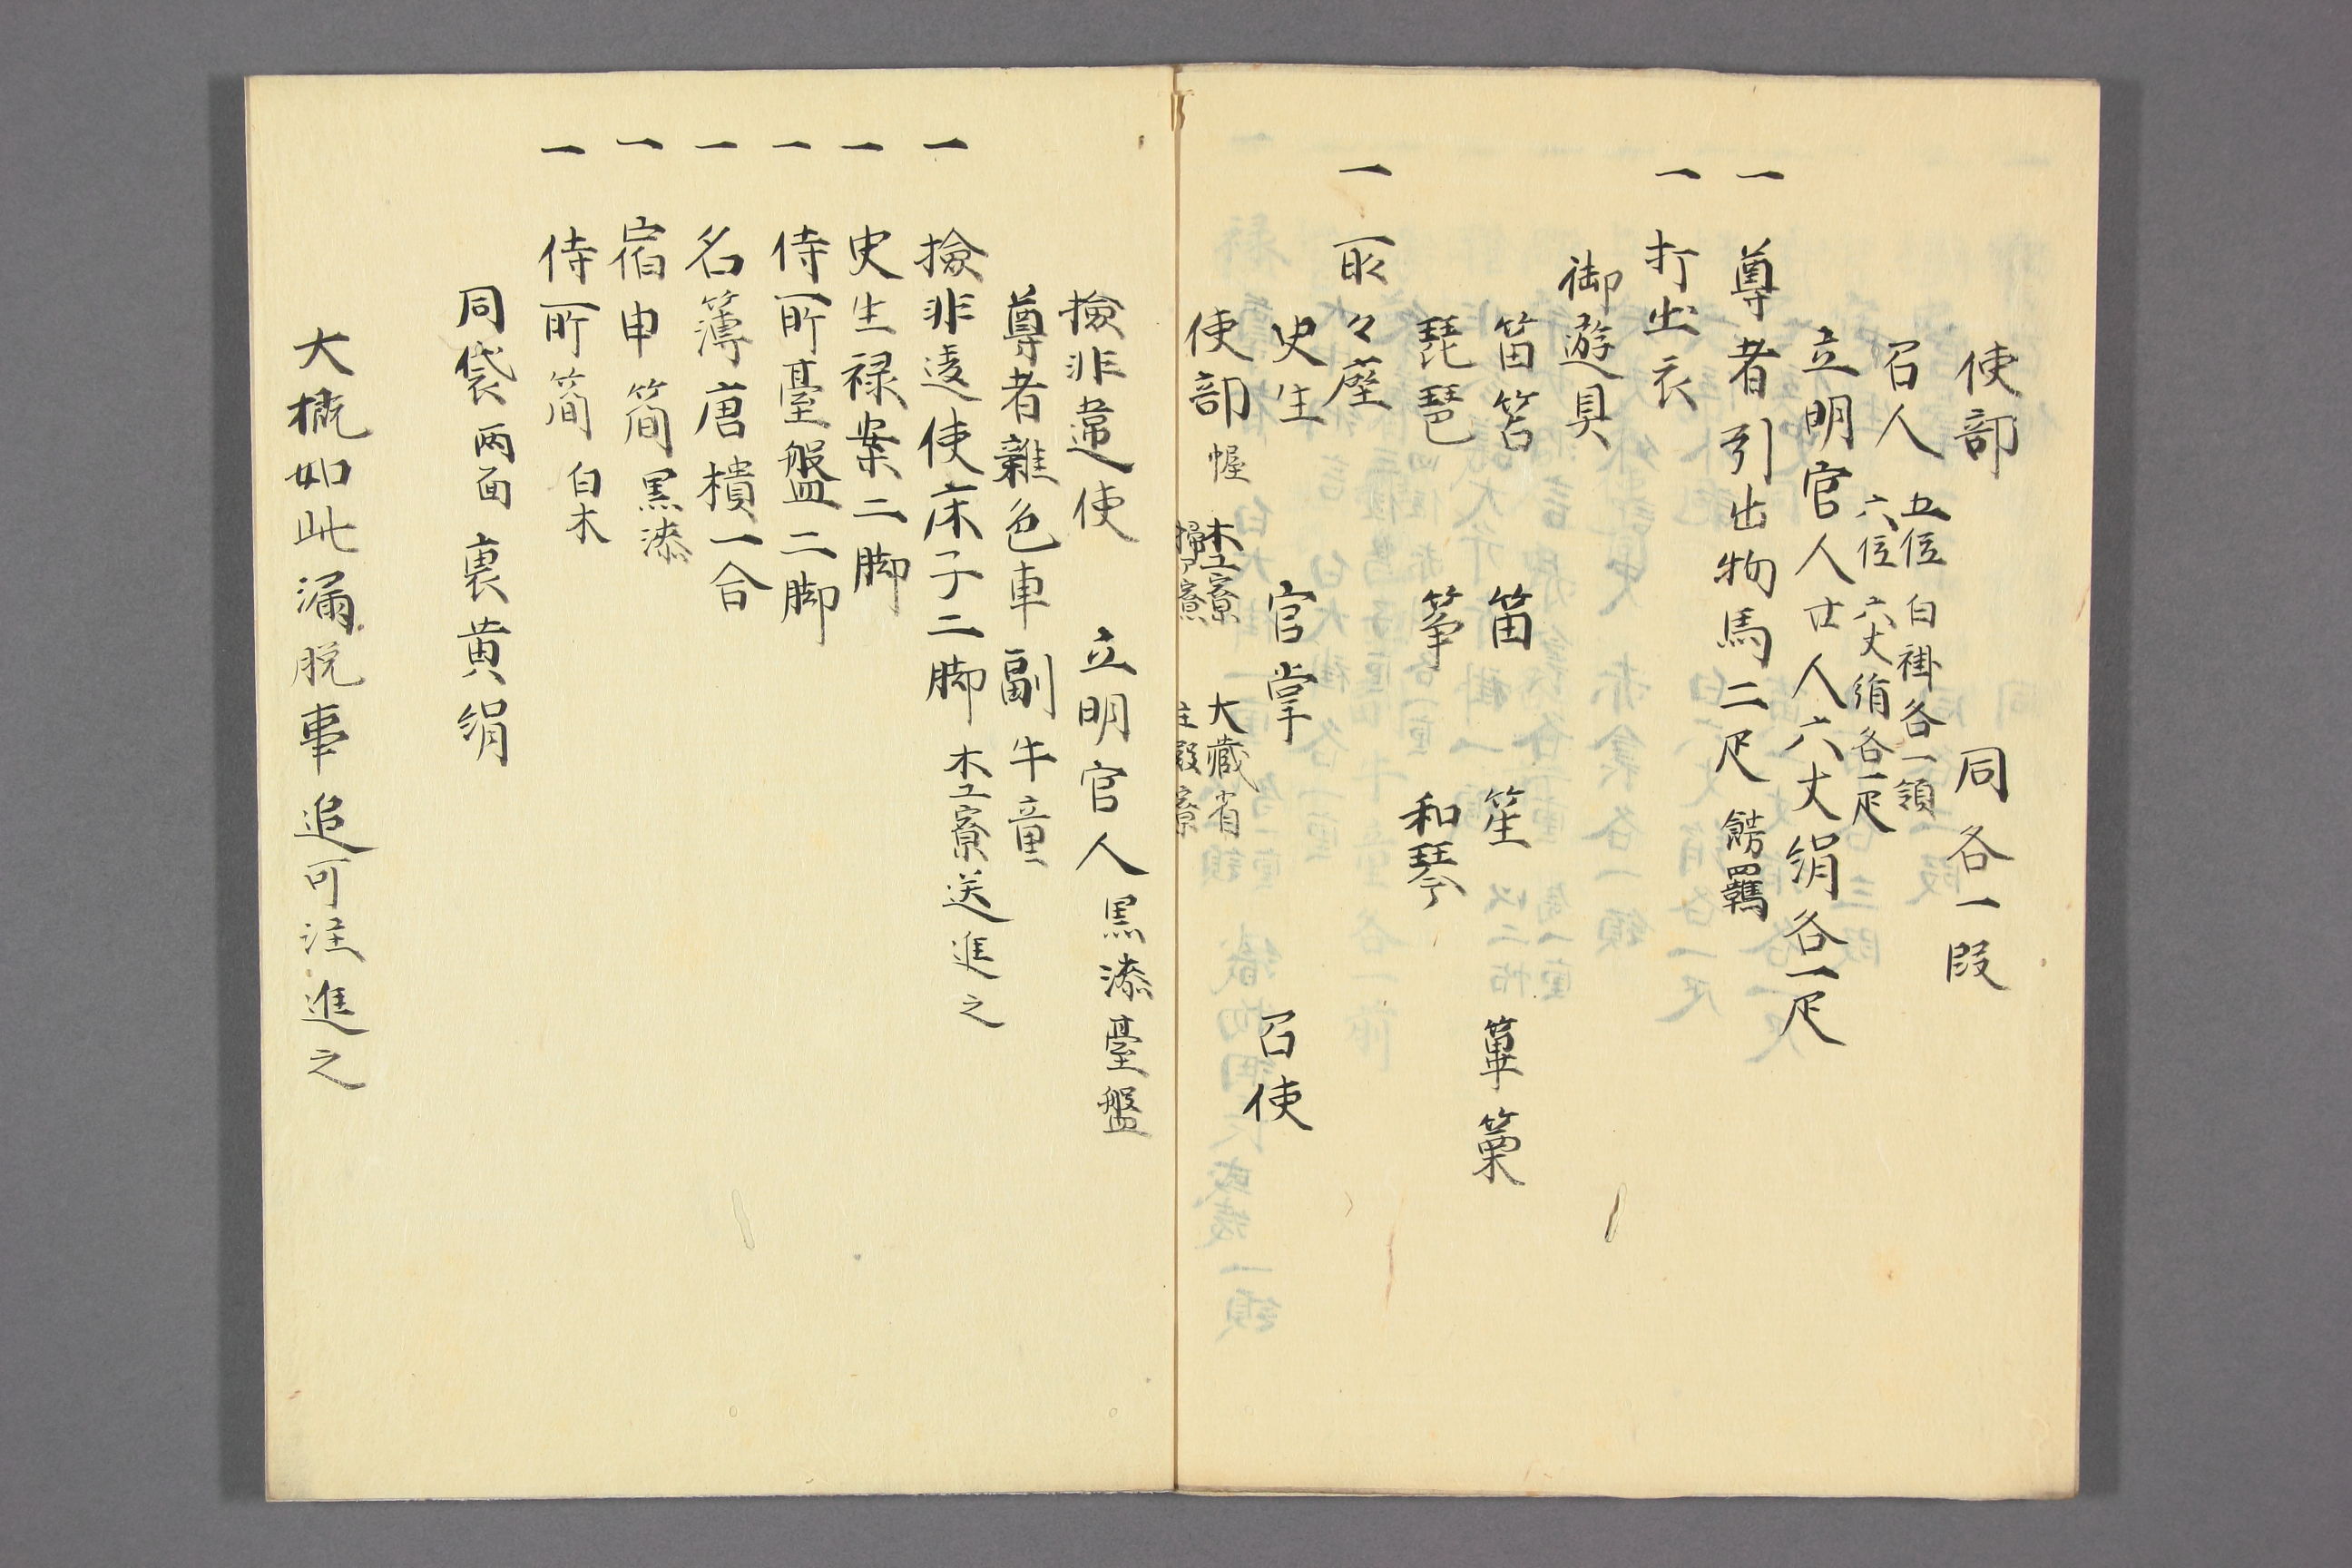 使部 同各一段
召人 五位白褂各一領
六位六丈絹各一疋
立明官人廿人六丈絹各一疋
一 尊者引出物馬二疋 餝羈
一 打出衣
御遊具
笛筥 笛 笙 篳篥
琵琶 箏 和琴
一 所々座
史生 官掌 召使
使部 幄 木工寮 大蔵省
掃部寮 主殿寮
撿非違使 立明官人 黒漆臺盤
尊者雜色車副牛童
一 撿非違使床子二脚 木工寮送進之
一 史生禄案二脚
一 侍所臺盤二脚
一 名簿唐樻一合
一 宿申簡 黒漆
一 侍所簡 白木
同袋 两面 裏黄絹
大概如此漏脱事追可注進之